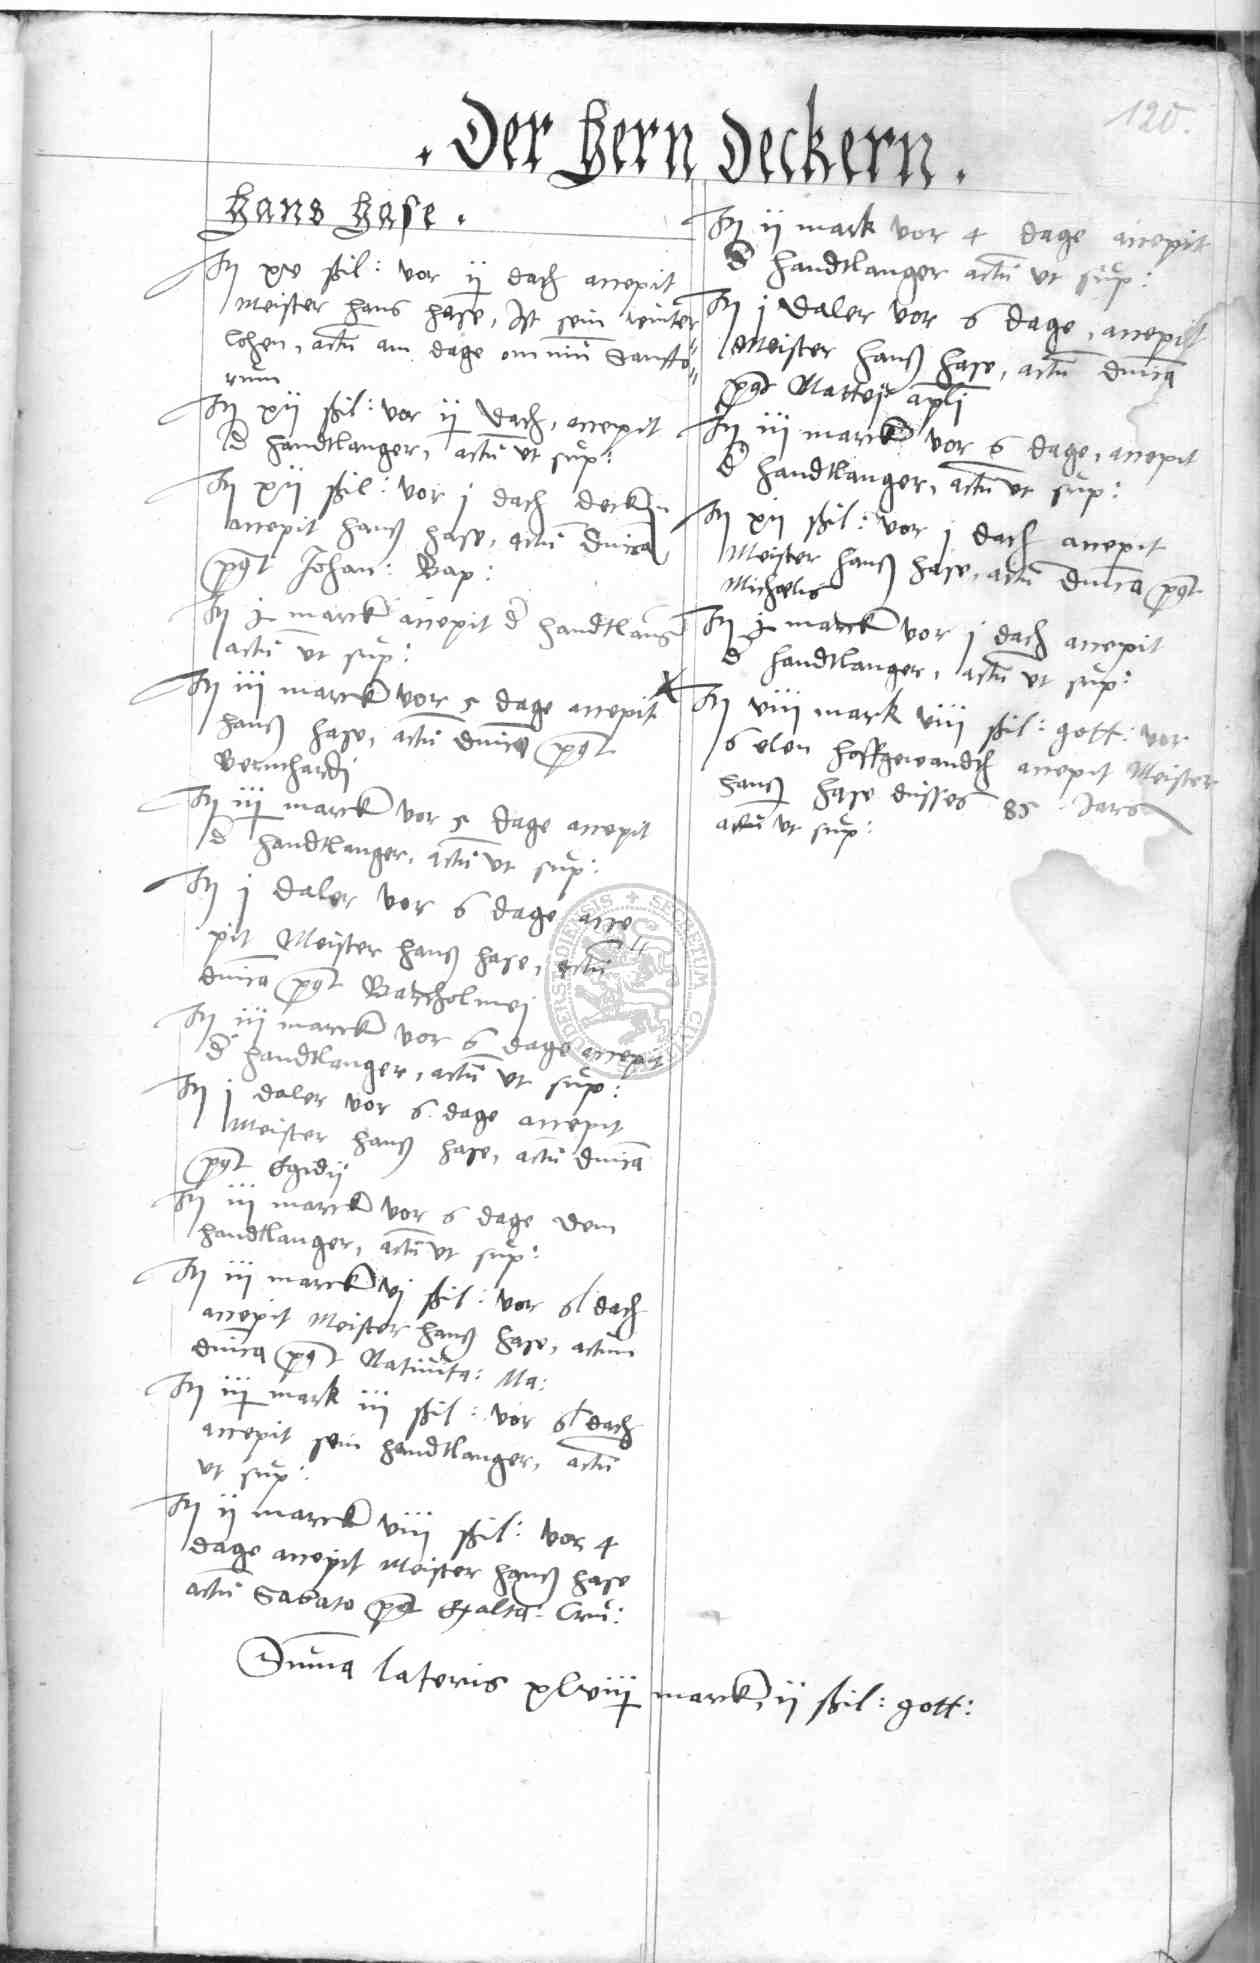 120.
. Der Hern Deckern .
Hans Hase .
Itz xv ßil: vor ij dach accepit
Meister Hans Hase, Ist sein winter
lohen, actũ am dage omniũ Sancto„
rum
Itz xij ßil: vor ij dach, accepit
d handtlanger, actũ ut sup:
Itz xij ßil: vor j dach decken
accepit Hanß Hase, actũ dnica
post Johan: Bap:
Itz j marck accepit d handtlang
actũ ut sup:
Itz iij marck vor 5 dage accepit
Hanß Hase, actũ dnica post
Bernhardj
Itz iij marck vor 5 dage accepit
d handtlanger, actũ ut sup:
Itz j daler vor 6 dage acce
pit Meister Hanß Hase, actũ
dnica post Bartholmej
Itz iij marck vor 6 dage accepit
d handtlanger, actũ ut sup:
Itz j daler vor 6 dage accepit
Meister Hanß Hase, actũ dnica
post Egidij
Itz iij marck vor 6 dage dem
handtlanger, actũ ut sup:
Itz iij marck vj ßil: vor 6½ dach
accepit Meister Hanß Hase, actum
dnica post Natiuita: Ma:
Itz iij mark iij ßil: vor 6½ dach
accepit sein handtlanger, actũ
ut sup:
Itz ij marck viij ßil: vor 4
dage accepit Meister Hanß Hase
actũ Sabato post Exalta: Cru:
Itz ij mark vor 4 dage accepit
d handtlanger actũ ut sup:
Itz j daler vor 6 dage, accepit
Meister Hanß Hase, actũ dnica
post Mattej apli
Itz iij marck vor 6 dage, accepit
d handtlanger, actũ ut sup:
Itz xij ßil: vor j dach accepit
Meister Hanß Hase, actũ dnica post
Michaelis
Itz j marck vor j dach accepit
d handtlanger, actũ ut sup:
Itz viij mark viij ßil: gott: vor
6 elen hoffgewandth accepit Meister
Hanß Hase disses 85 Jars
actũ ut sup:
Suma lateris xlviij marck, ij ßil: gott:
SECRETUM CIVI